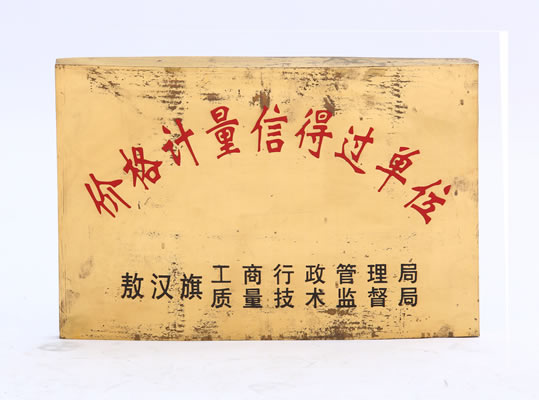 价格计量信得过单位
敖汉旗工商行政管理局
质量技术监督局